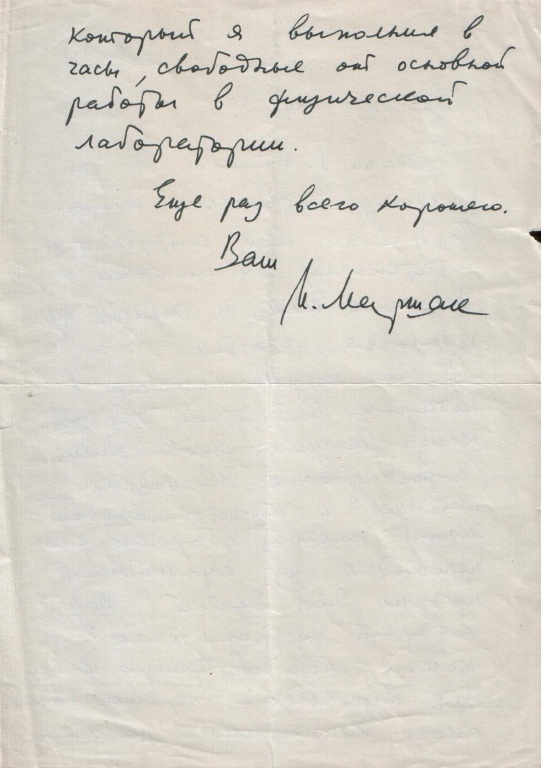 который я выполнил в
часы, свободные от основной
работы в физической
лаборатории.
Еще раз всего хорошего.
Ваш
И. Маршак